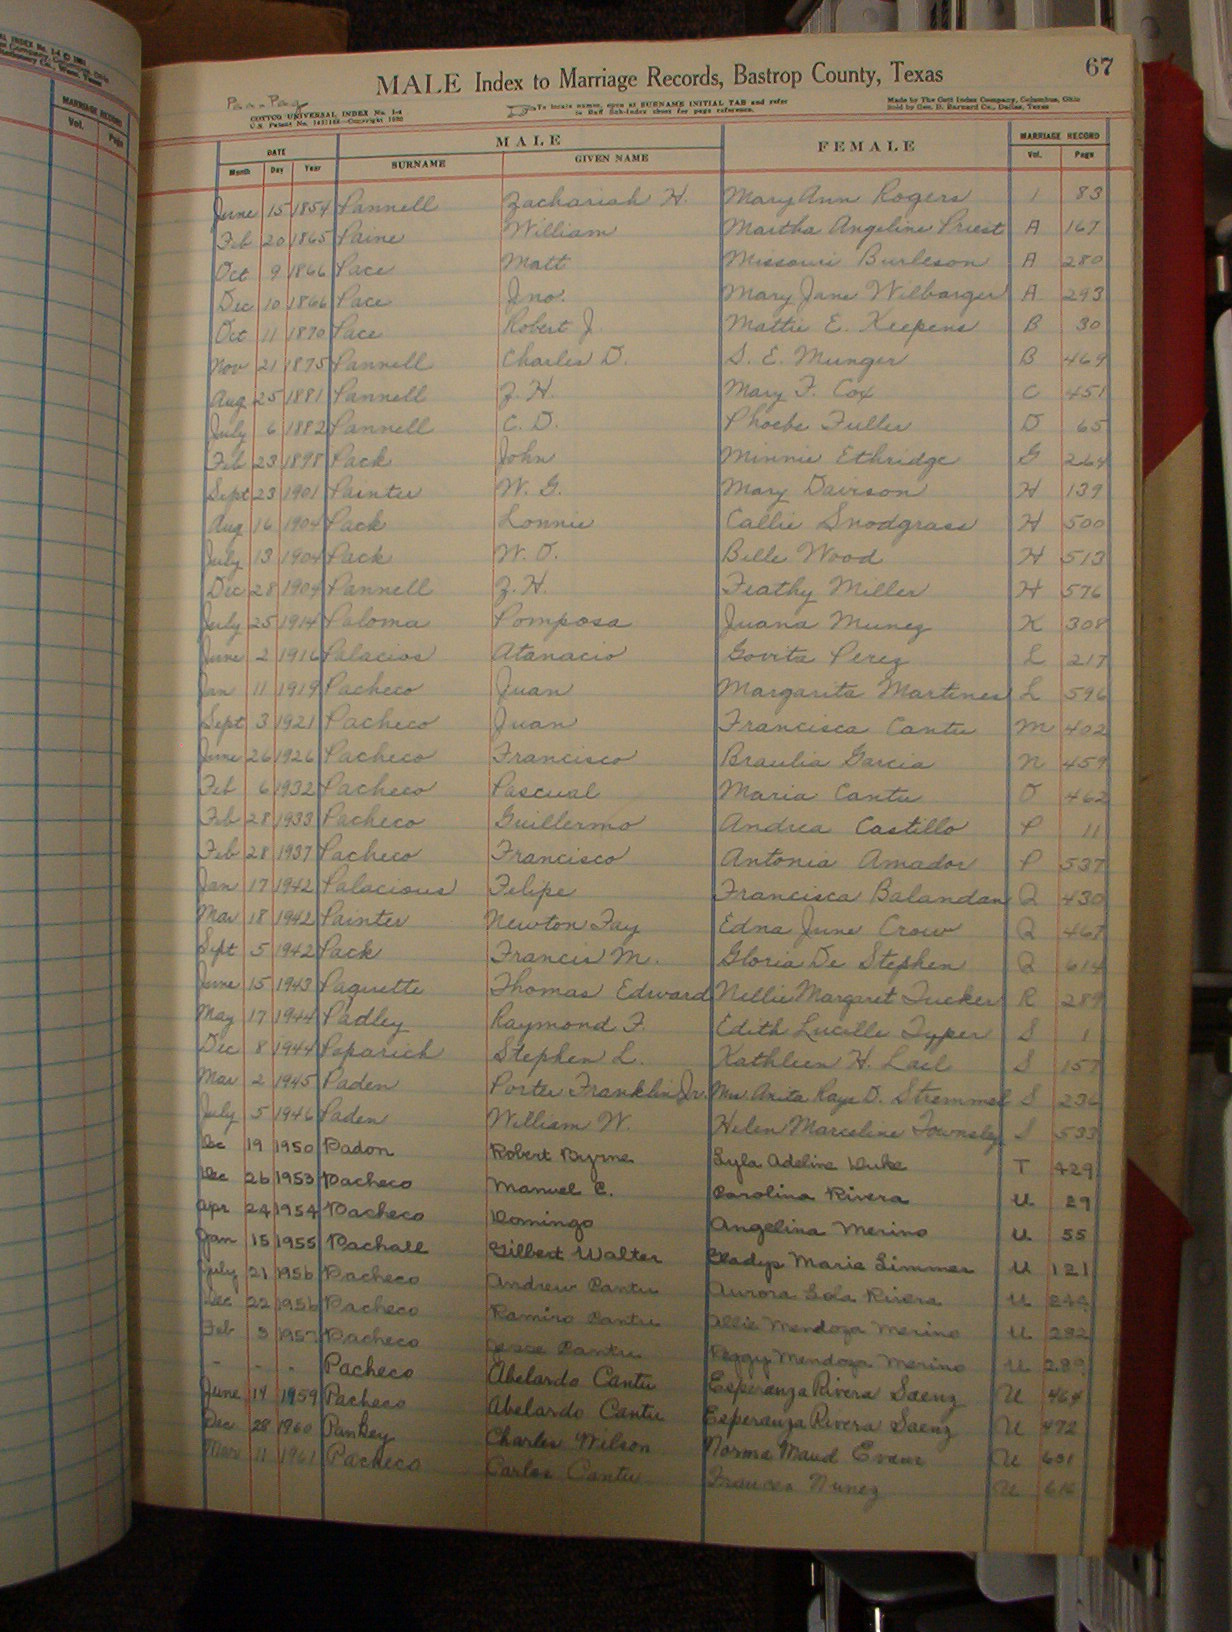 MARRIAGE RECORD
Vol. Page
67
MALE Index to Marriage Records, Bastrop County, Texas
Paa - Pag
COTTCO UNIVERSAL INDEX No. I-4
U.S. Patent No. Copyright 1920
To locate names, open at SURNAME INITIAL TAB and refer
to Buff Sub-Index sheet for page reference.
Made by The Cott Index Company, Columbus, Ohio
Sold by Geo. D. Barnard Co., Dallas, Texas
DATE MALE FEMALE MARRIAGE RECORD
Month Day Year SURNAME GIVEN NAME Vol. Page
June 15 1854 Pannell Zachariah H. Mary Ann Rogers 1 83
Feb 20 1865 Paine William Martha Angeline Priest A 167
Oct 9 1866 Pace Matt Missouri Burleson A 280
Dec 10 1866 Pace Jno. Mary Jane Wilbarger A 293
Oct 11 1870 Pace Robert J. Mattie E. Keepens B 30
Nov 21 1875 Pannell Charles D. S. E. Munger B 469
Aug 25 1881 Pannell Z. H. Mary F. Cox C 451
July 6 1882 Pannell C. D. Phoebe Fuller D 65
Feb 23 1898 Pack John Minnie Ethridge G 264
Sept 23 1901 Painter W. G. Mary Davison H 139
Aug 16 1904 Pack Lonnie Callie Snodgrass H 500
July 13 1904 Pack W. O. Belle Wood H 513
Dec 28 1904 Pannell Z. H. Feathy Miller H 576
July 25 1914 Paloma Pomposa Juana Munez K 308
June 2 1916 Palacios Atanacio Govita Perez L 217
Jan 11 1919 Pacheco Juan Margarita Martines L 596
Sept 3 1921 Pacheco Juan Francisca Cantu M 402
June 26 1926 Pacheco Francisco Braulia Garcia N 459
Feb 6 1932 Pacheco Pascual Maria Cantu O 462
Feb 28 1933 Pacheco Guillermo Andrea Castillo P 11
Feb 28 1937 Pacheco Francisco Antonia Amador P 537
Jan 17 1942 Palacious Felipe Francisca Balandan Q 430
Mar 18 1942 Painter Newton Fay Edna June Crow Q 467
Sept 5 1942 Pack Francis M. Gloria De Stephen Q 614
June 15 1943 Paquette Thomas Edward Nellie Margaret Tucker R 289
May 17 1944 Padley Raymond F. Edith Lucille Typer S 1
Dec 8 1944 Paparich Stephen L. Kathleen H. Lael S 157
Mar 2 1945 Paden Porter Franklin Jr. Mrs. Anita Raye D. Stremmel S 236
July 5 1946 Paden William W. Helen Marceline Townsley S 533
Dec 19 1950 Padon Robert Byrne Lyla Adeline Duke T 429
Dec 26 1953 Pacheco Manuel C. Carolina Rivera U 29
Apr 24 1954 Pacheco Domingo Angelina Merino U 55
Jan 15 1955 Pachall Gilbert Walter Gladys Marie Simmer U 121
July 21 1956 Pacheco Andrew Cantu Aurora Gola Rivera U 244
Dec 22 1956 Pacheco Ramiro Cantu Allie Mendoza Merino U 282
Feb 3 1957 Pacheco Jesse Cantu Peggy Mendoza Merino U 289
- - - Pacheco Abelardo Cantu Esperanza Rivera Saenz U 464
June 14 1959 Pacheco Abelardo Cantu Esperanza Rivera Saenz U 472
Dec 28 1960 Pankey Charles Wilson Norma Maud Evans U 601
Mar 11 1961 Pacheco Carlos Cantu Frances Nunez U 616